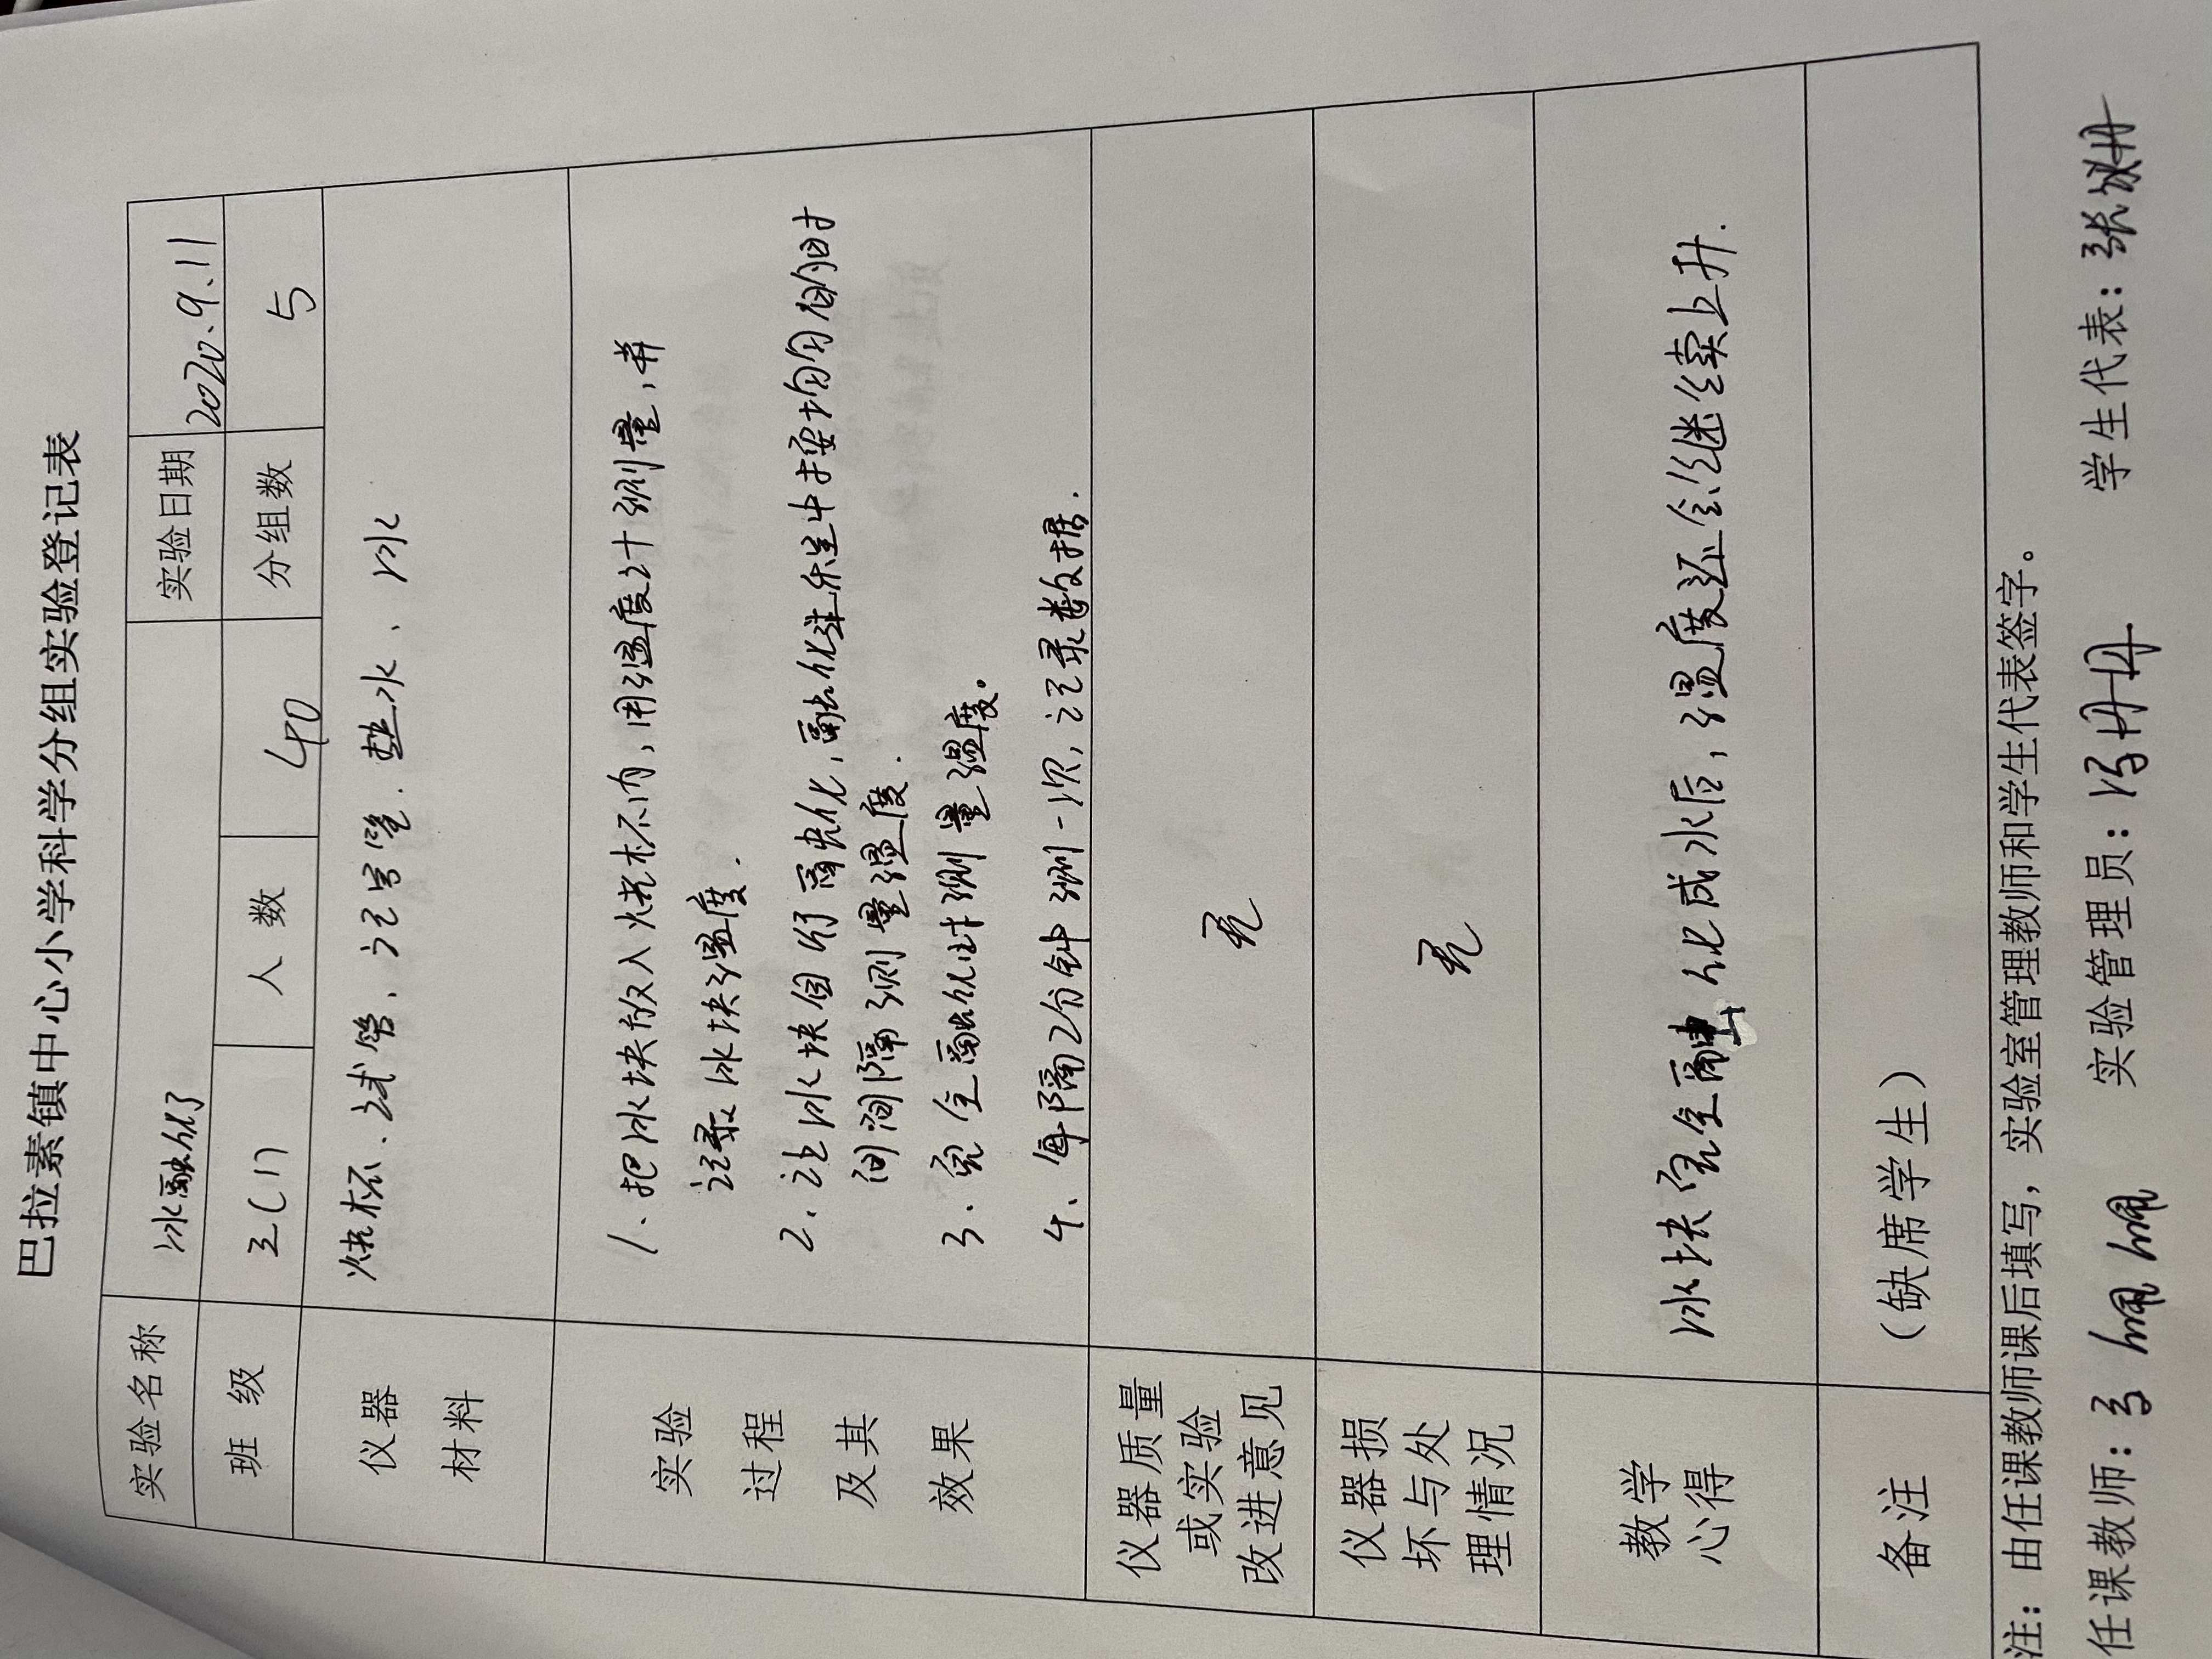 巴拉素镇中心小学科学分组实验登记表
实验名称 冰融化了 实验日期 2020.9.11
班 级 三(1) 人 数 40 分组数 5
仪器
材料
烧杯、试管、记号笔、盐水、冰
实验
过程
及其
效果
1、把冰块放入烧杯内,用温度计测量,并
记录冰块温度.
2、让冰块自行融化,融化过程中 均匀相同时
间间隔测量温度.
3、完全融化时测量温度。
4、每隔2分钟测一次,记录数据.
仪器质量
或实验
改进意见
无
仪器损
坏与处
理情况
无
教学
心得
冰块完全融化成水后,温度还会继续上升.
备注
(缺席学生)
注:由任课教师课后填写,实验室管理教师和学生代表签字。
任课教师: 实验管理员:冯丹丹 学生代表:张